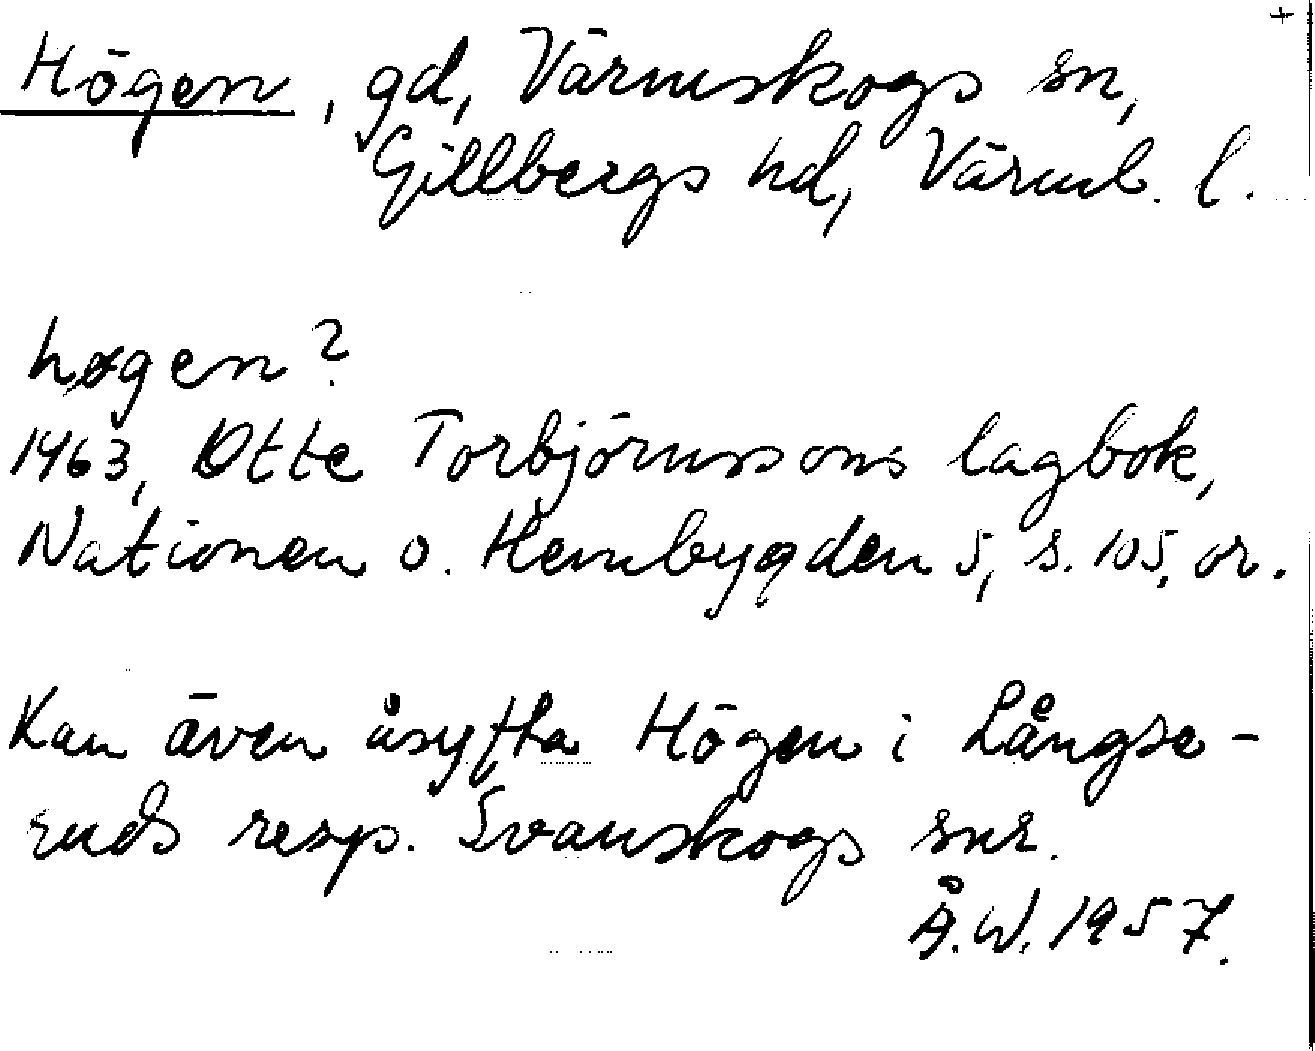 +
Högen, gd, Värmskogs sn,
Gillbergs hd, Värml. l.
høgen?
1463, Otte Torbjörnssons lagbok,
Nationen o. Hembygden 5, s. 105, or.
Kan även åsyfta Högen i Långse-
ruds resp. Svanskogs snr.
Å.W. 1957.